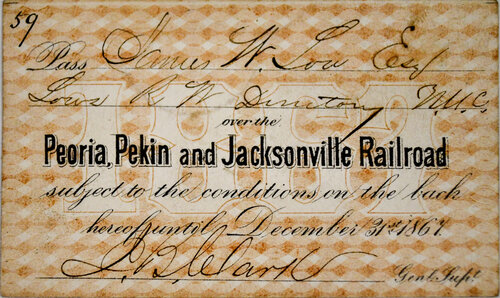 59
Pass James W. Low Esq
Lows R W Directory N.Y.C.
over the
Peoria, Pekin and Jacksonville Railroad
subject to the conditions on the back
hereof until December 31st 1867.
J. B. Clark Genl. Supt.
1867